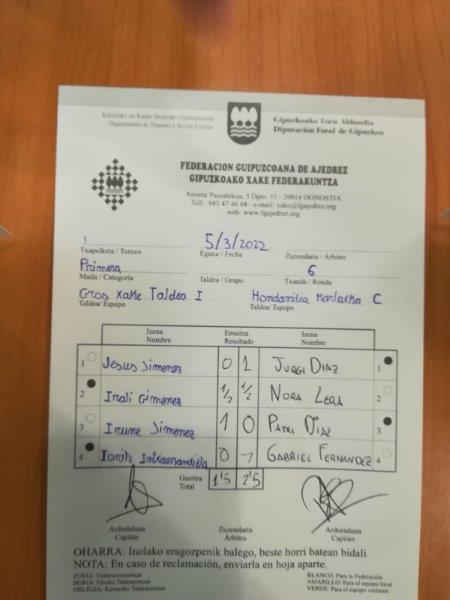 Gipuzkoako Foru Aldundia
Departamento de Deportes y Acción Exterior
Diputación Foral de Gipuzkoa
FEDERACION GUIPUZCOANA DE AJEDREZ
GIPUZKOAKO XAKE FEDERAKUNTZA
Anoeta Pasealekua, 5 Dpto. 11 - 20014 DONOSTIA
Telf.: 943 47 46 04 - e-mail: xake@fgajedrez.org
web: www.fgajedrez.org
1 5/3/2022
Txapelketa / Torneo Eguna / Fecha Zuzendaria / Árbitro
Primera 6
Maila / Categoría Taldea / Grupo Txanda / Ronda
Gros Xake Taldea I Hondarribia C
Taldea/ Equipo Taldea/ Equipo
Izena Emaitza Izena
Nombre Resultado Nombre
1 Jesus Jimenez 0 1 JURGI DIAZ 1
2 Inali Gimenez 1/2 1/2 NORA LERA 2
3 Irune Jimenez 1 0 PATXI DIAZ 3
4 0 1 GABRIEL FERNANDEZ 4
Guztira
Total 1'5 2'5
Arduraduna Zuzendaria Arduraduna
Capitán Árbitro Capitán
OHARRA: Inolako eragozpenik balego, beste horri batean bidali.
NOTA: En caso de reclamación, enviarla en hoja aparte.
ZURIA: Federazioarentzat BLANCO: Para la Federación
HORIA: Etxeko Taldearentzat AMARILLO: Para el equipo local
ORLEGIA: Kanpoko Taldearentzat VERDE: Para el equipo visitante